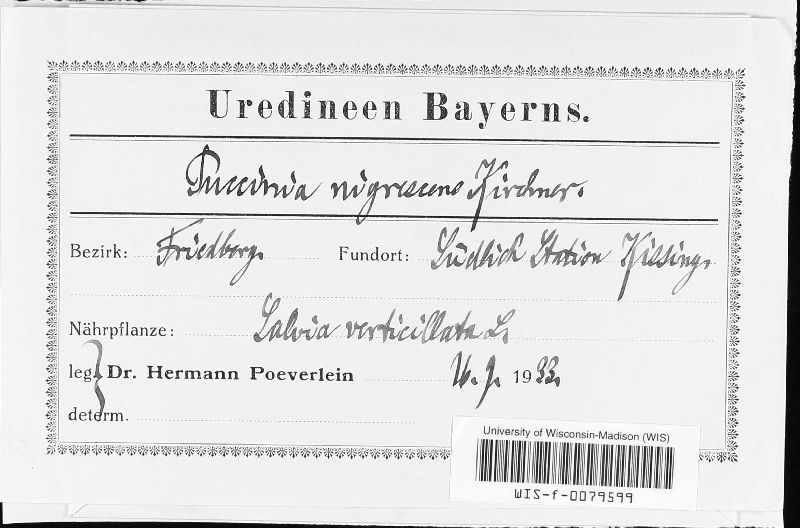 Uredineen Bayerns.
Puccinia nigrescens Kirchner.
Bezirk: Friedberg. Fundort: Südlich Station Kissing.
Nährpflanze: Salvia verticillata L.
leg. Dr. Hermann Poeverlein 1933.
determ.
University of Wisconsin-Madison (WIS)
WIS-f-0079599